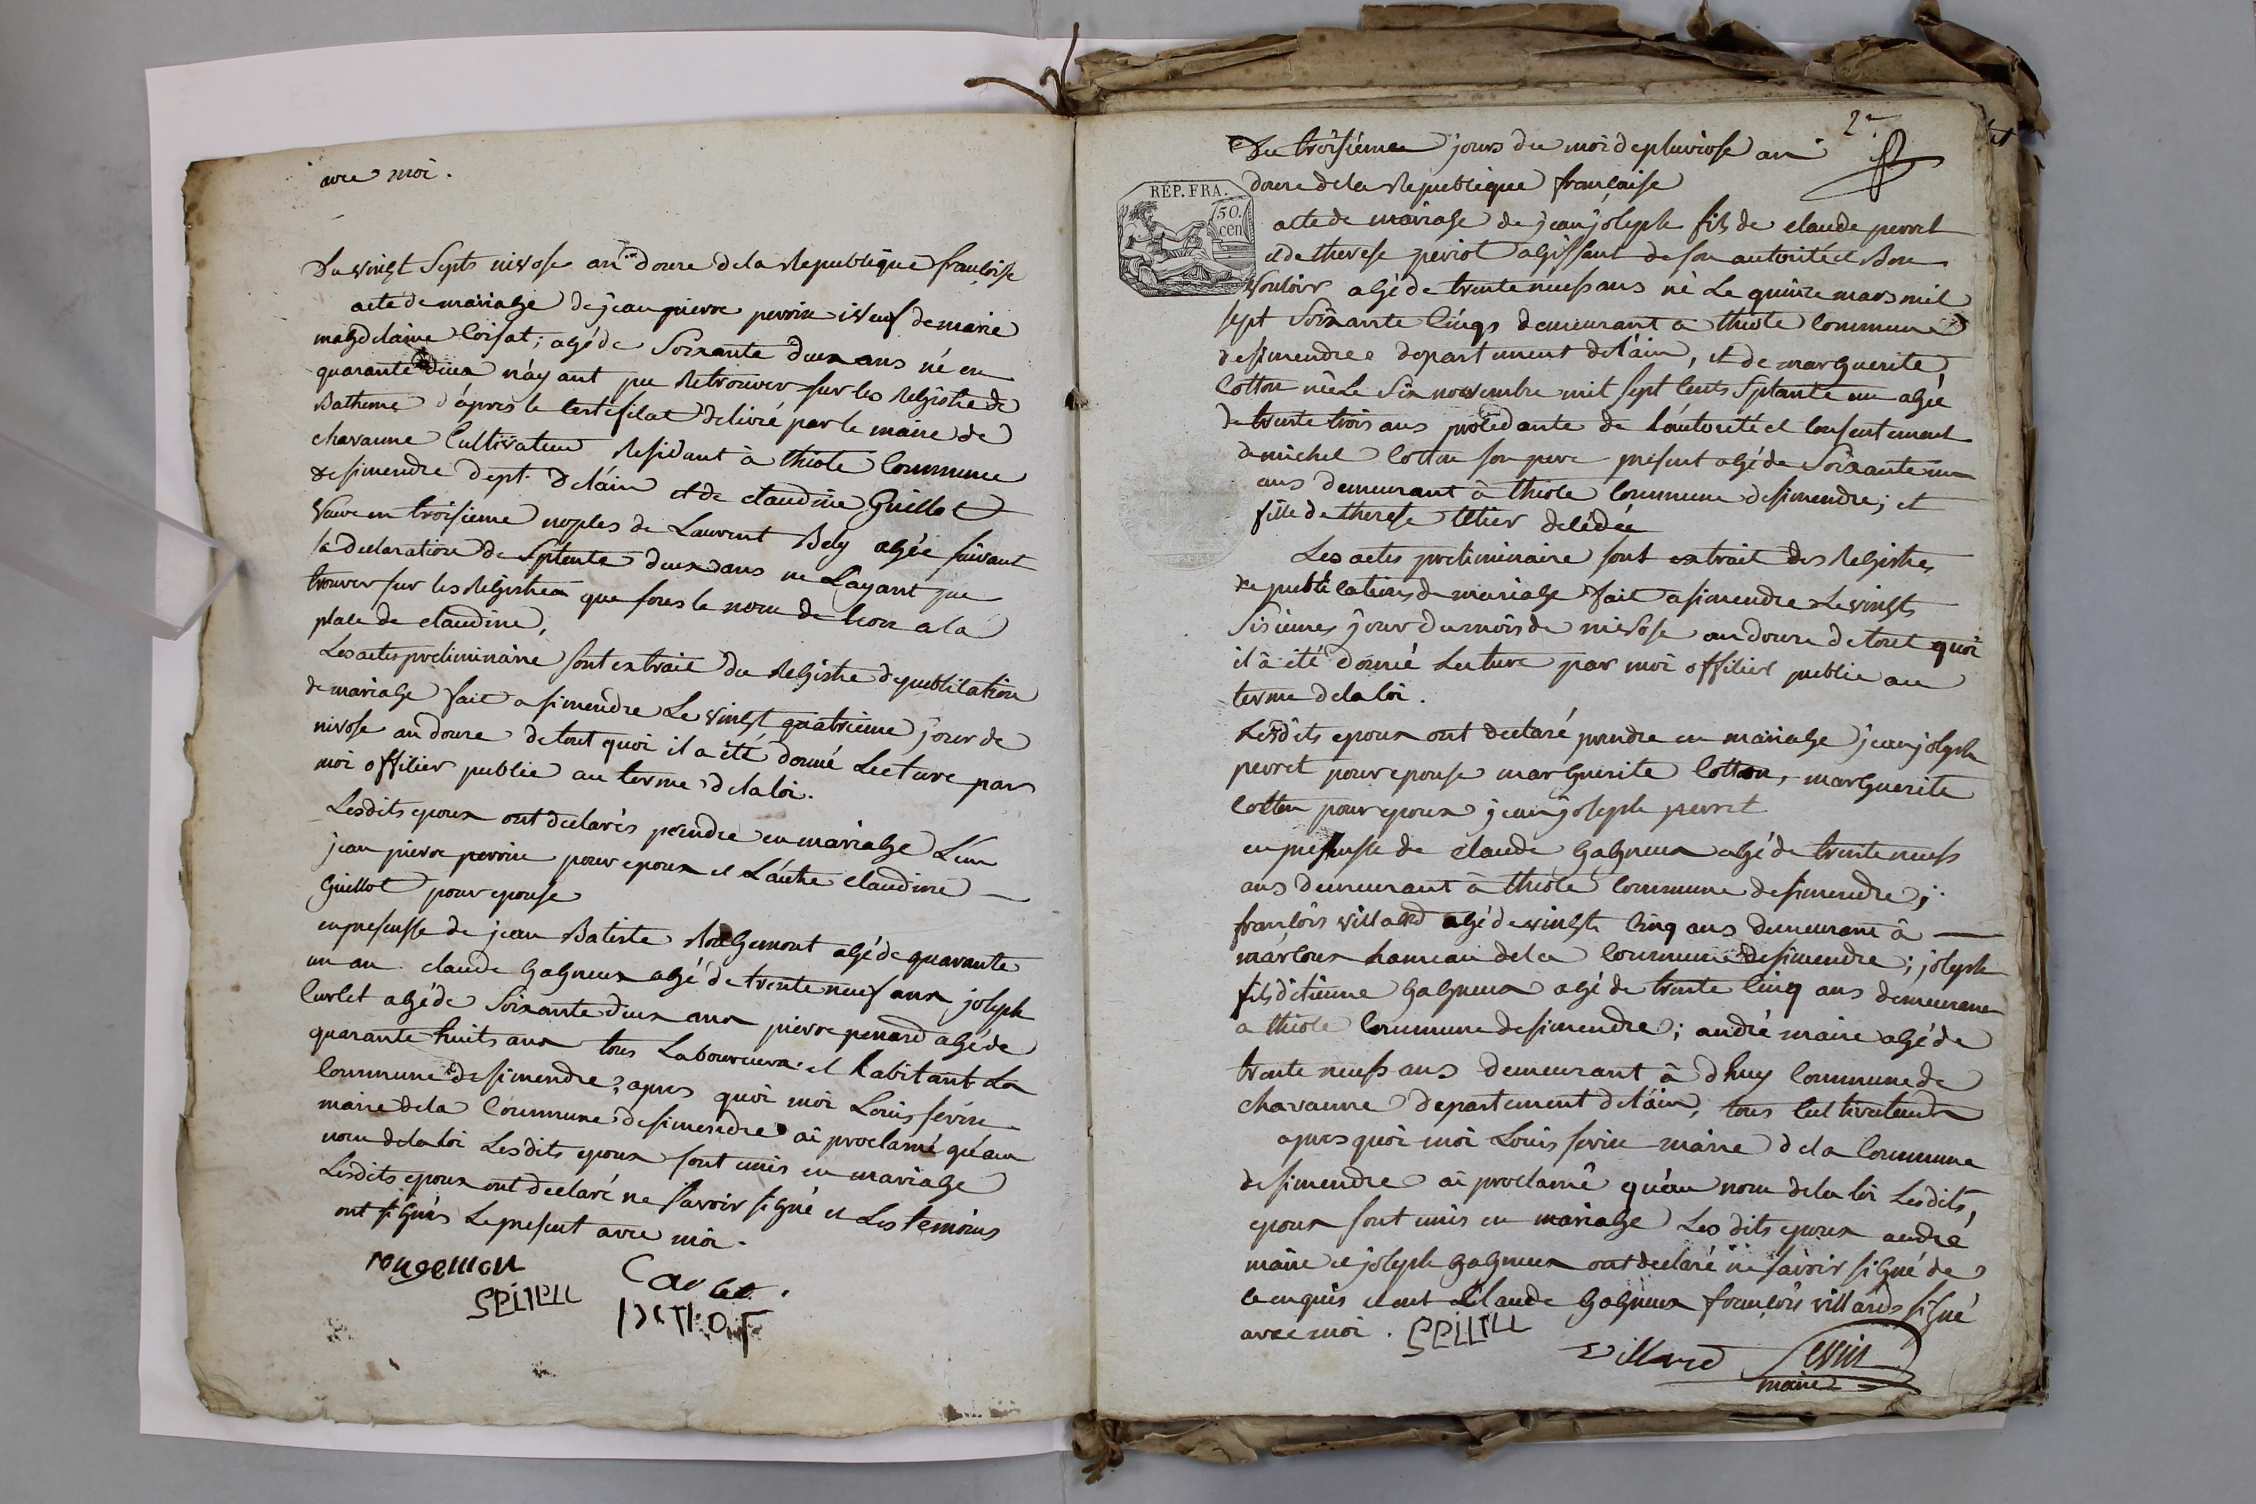 avec moi.
Du vingt Septs nivose an douze dela Republique françoise
acte de mariage de jean pierre perrin veuf de marie
magdelaine Coisat; agé de Soixante deux ans né en
quarante deux n'ayant pu Retrouver sur les Registre de
Batheme d'après le certificat delivré par le maire de
chavanne Cultivateur Residant à thiole Commune
de simendre dept. De l'ain et de claudine Guillot
veuve en troisieme noples de Laurent Bely agée suivant
sa declaration de Septente deux ans ne l'ayant pu
trouver sur les Registres que sous le nom de a la
place de claudine,
Les actes preliminaire sont extrait du Registre de publication
de mariage fait a simendre Le vingt quatrieme jour de
nivose an douze de tout quoi il a été donné Lecture par
moi officier public au terme de la loi.
Lesdits epoux ont declarés prendre en mariage L'un
jean pierre perrin pour epoux et L'autre claudine
Guillot pour epouse
en presensse de jean Batiste Rougemont agé de quarante
un an claude Gagneux agé de trente neuf ans joseph
Curlet agé de Soixante deux ans pierre penard agé de
quarante huits ans tous Laboureurs et habitant La
Commune de simendre, apres quoi moi Louis sevin
maire dela Commune de simendre ai proclamé qu'au
nom dela loi Lesdits epoux sont unis en mariage
Lesdits epoux ont declaré ne savoir signé et Les temoins
ont signés Le present avec moi.
rougemon
2e
Du troisieme jours du moi de pluviose an
douze dela Republique française
REP. FRA.
50. cen
acte de mariage de jean joseph fils de claude perret
et de therese periot agissant de son autorité et Bon
Vouloir agé de trente neufs ans né Le quinze mars mil
sept Soixante Cinqs demeurant à thiole Commune
de simendre departement de l'ain, et de marguerite
Cotton née Le Six novembre mil sept Cents Septante un agée
de trente trois ans procedante de l'autorité et Consentement
de michel Cotton son pere present agé de Soixante un
ans demeurant à thiole Commune de simendre; et
fille de therese tetier decedée
Les actes preliminaire sont extrait des Registres
de publications de mariage fait a simendre Le vingts
Sixiemes jour du mois de nivose an douze de tout quoi
il a été donné Lecture par moi officier public au
terme dela loi.
Lesdits epoux ont declaré prendre en mariage jean joseph
perret pour epouse marguerite Cotton, marguerite
Cotton pour epoux jean joseph perret
en presensse de claude Gagneux agé de trente neufs
ans demeurant à thiole Commune de simendre;
françois villard agé de vingts Cinq ans demeurant à
marcoux hameau dela Commune de simendre; joseph
fils d'etienne Gagneux agé de trente Cinq ans demeurant
a thiole Commune de simendre; andré maire agé de
trente neufs ans demeurant à dhuy Commune de
chavanne departement de l'ain, tous Cultivateurs
apres quoi moi Louis sevin maire dela Commune
de simendre ai proclamé qu'au nom dela loi Lesdits
epoux sont unis en mariage Les dits epoux andré
maire et joseph Gagneux ont declaré ne savoir signé de
ce enquis et ont Claude Gagneux françois villards signé
avec moi.
villard Sevin
maire